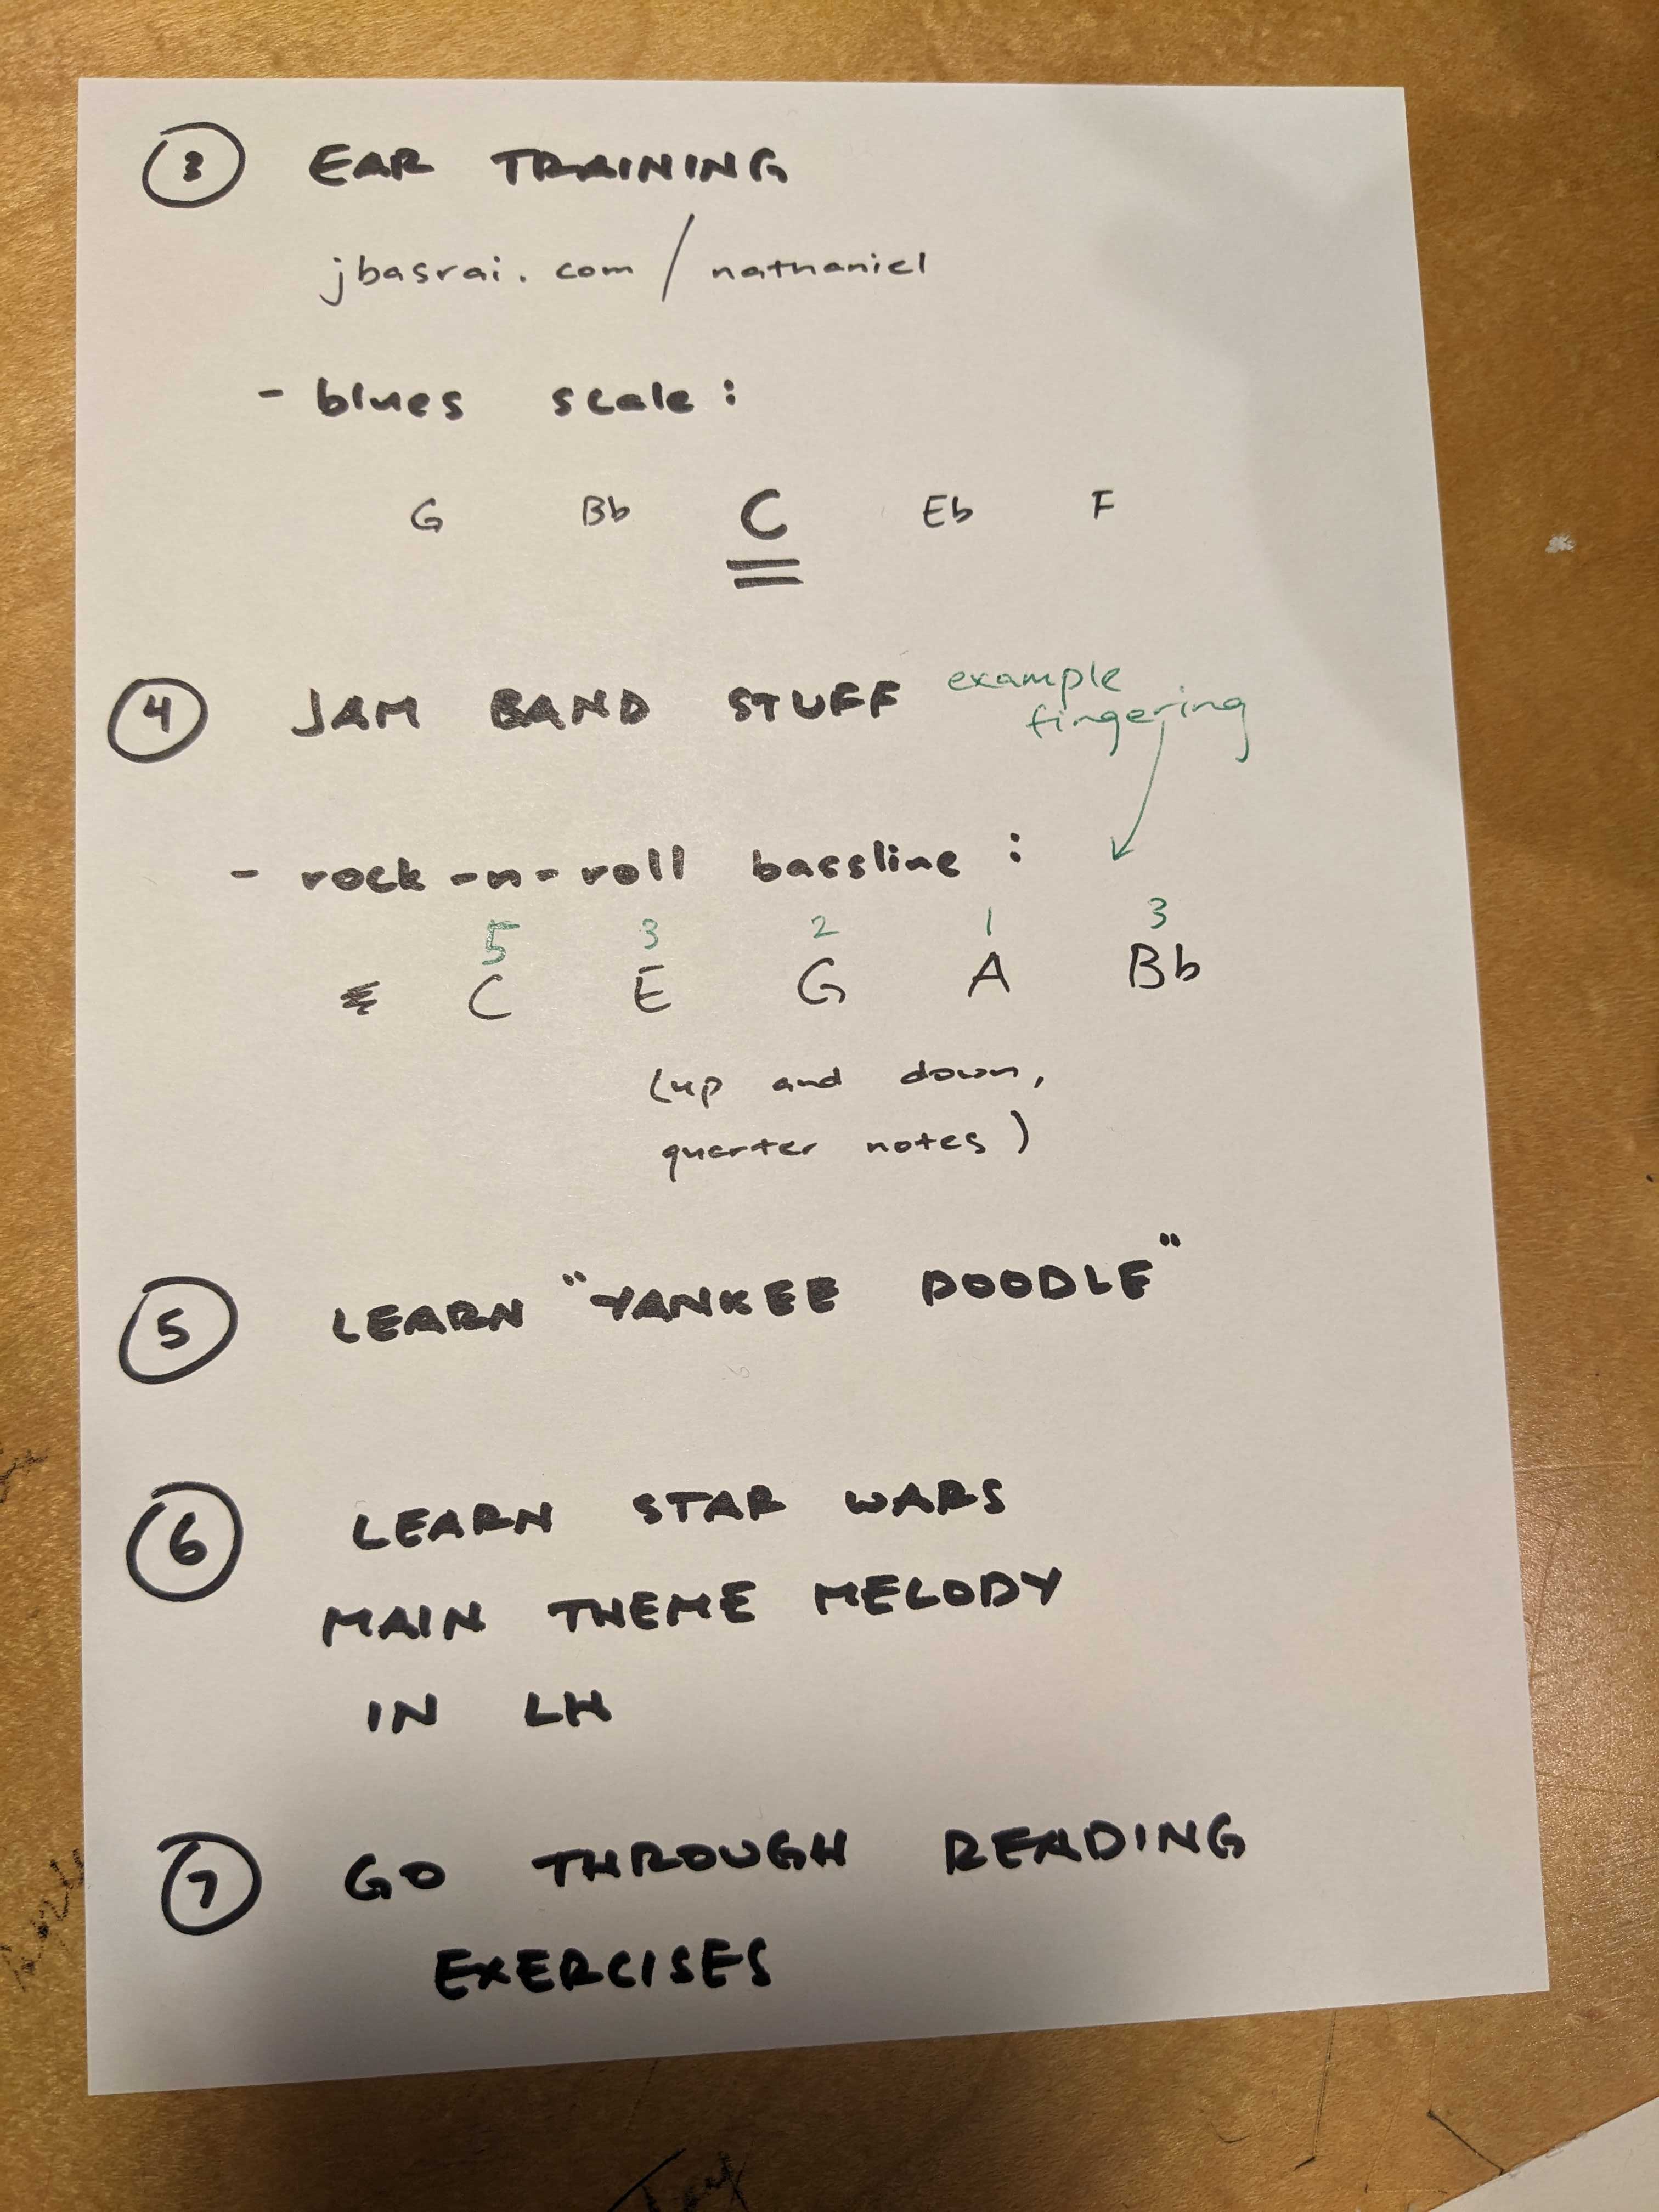 3 EAR TRAINING
jbasrai.com / nathaniel
- blues scale:
G Bb C Eb F
4 JAM BAND STUFF
example
fingering
- rock-n-roll bassline:
5 3 2 1 3
C E G A Bb
(up and down,
quarter notes)
5 LEARN "YANKEE DOODLE"
6 LEARN STAR WARS
MAIN THEME MELODY
IN LH
7 GO THROUGH READING
EXERCISES